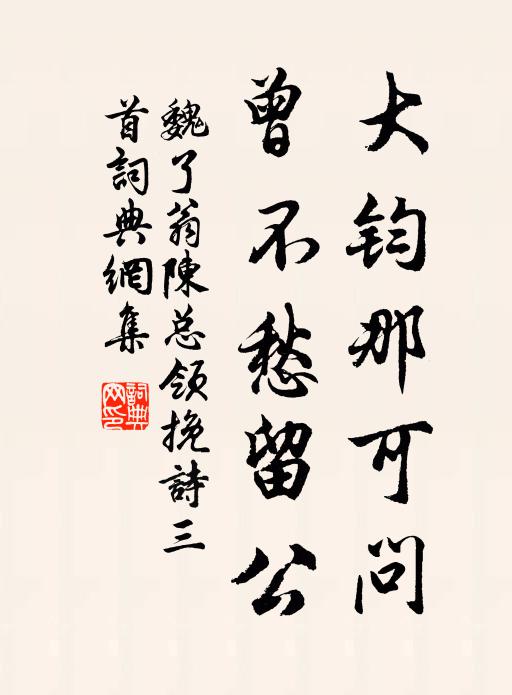 大钧那可问
曾不愁留公
魏了翁陳总领挽詩三
首詞典網集
詞典
网印